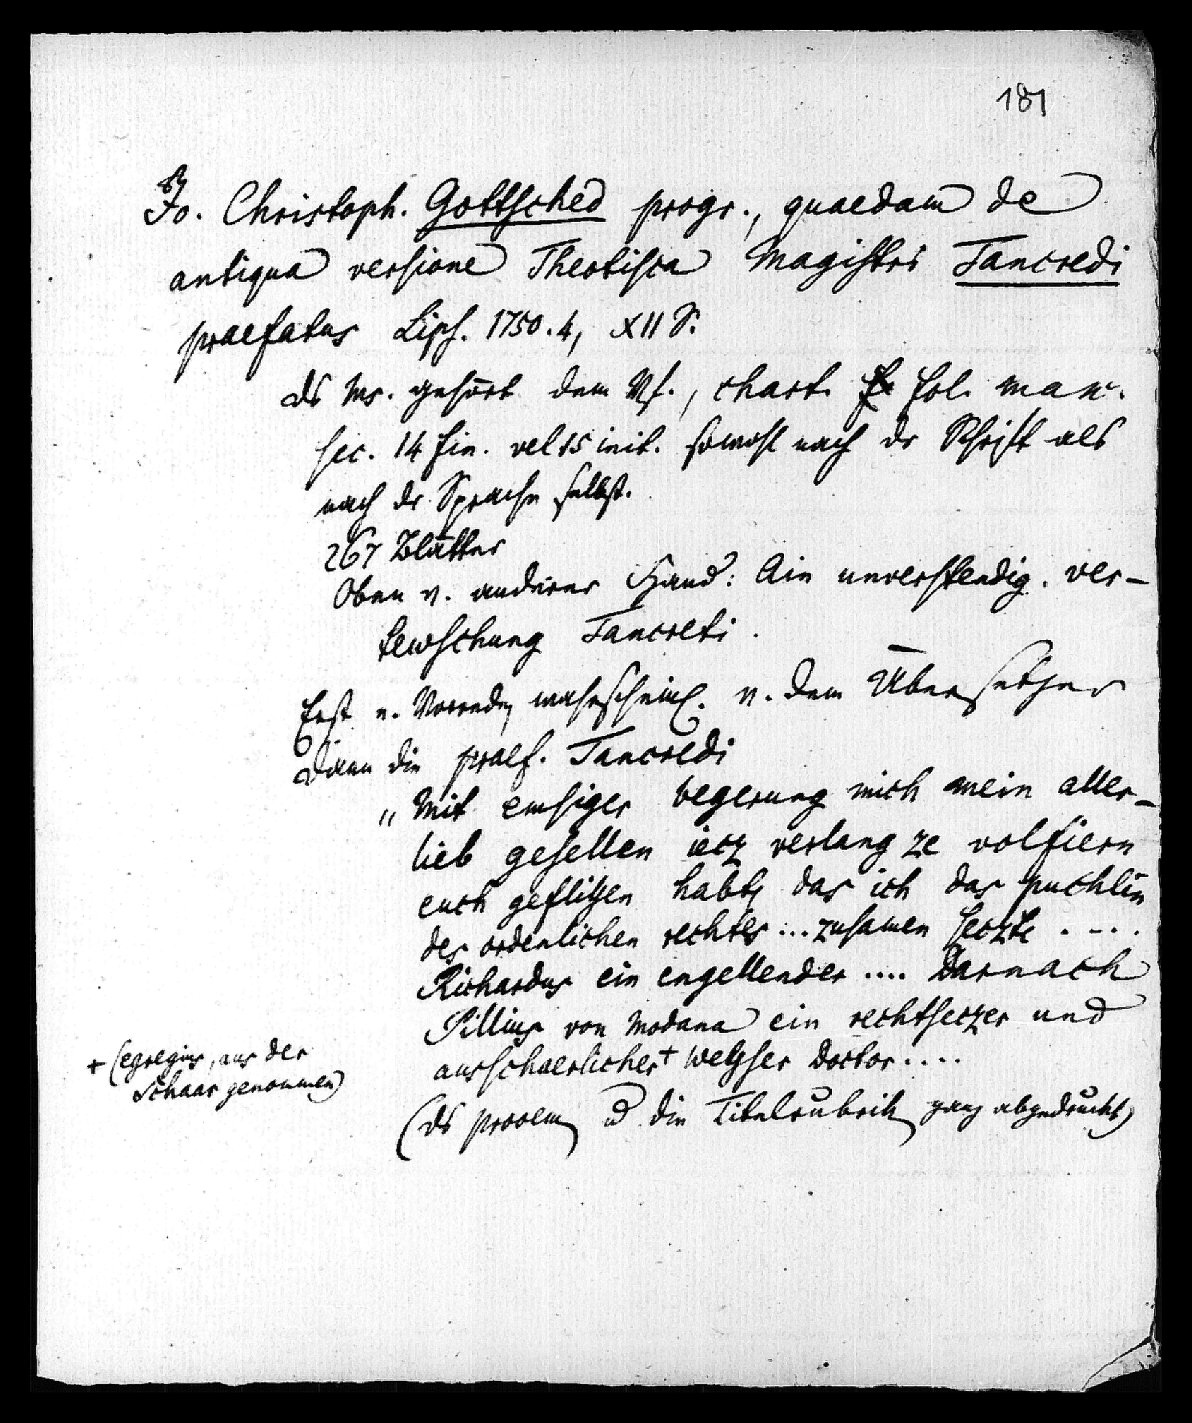 181
Jo. Christoph. Gottsched progr., quaedam de
antiqua versione Theotisca Magistri Tancredi
praefatus Lips. 1750. 4, XII S.
ds Ms. gehört dem Vf., chart. fol. max.
sec. 14 fin. vel 15 init. sowohl nach dr Schrift als
nach dr Sprache selbst.
267 Blätter
Oben v. anderer Hand: Ain unverstendig. ver-
tewschung Tancreti.
Erst e. Vorrede wahrscheinl. v. dem Übersetzer
dann die praef. Tancredi
„Mit emsiger begerung mich mein aller-
lieb gesellen iecz verlang ze volfiern
euch geflitzen habt das ich das puchlin
des ordenlichen rechtes ... zusamen seczte ....
Richardus ein engellender .... Darnach
Pillius von Modana ein rechtseczer und
ausschaerlicher+ welhser Doctor ....
+ (egregius, aus der
Schaar genommen)
(ds prooem u die Titelrubrik ganz abgedruckt)